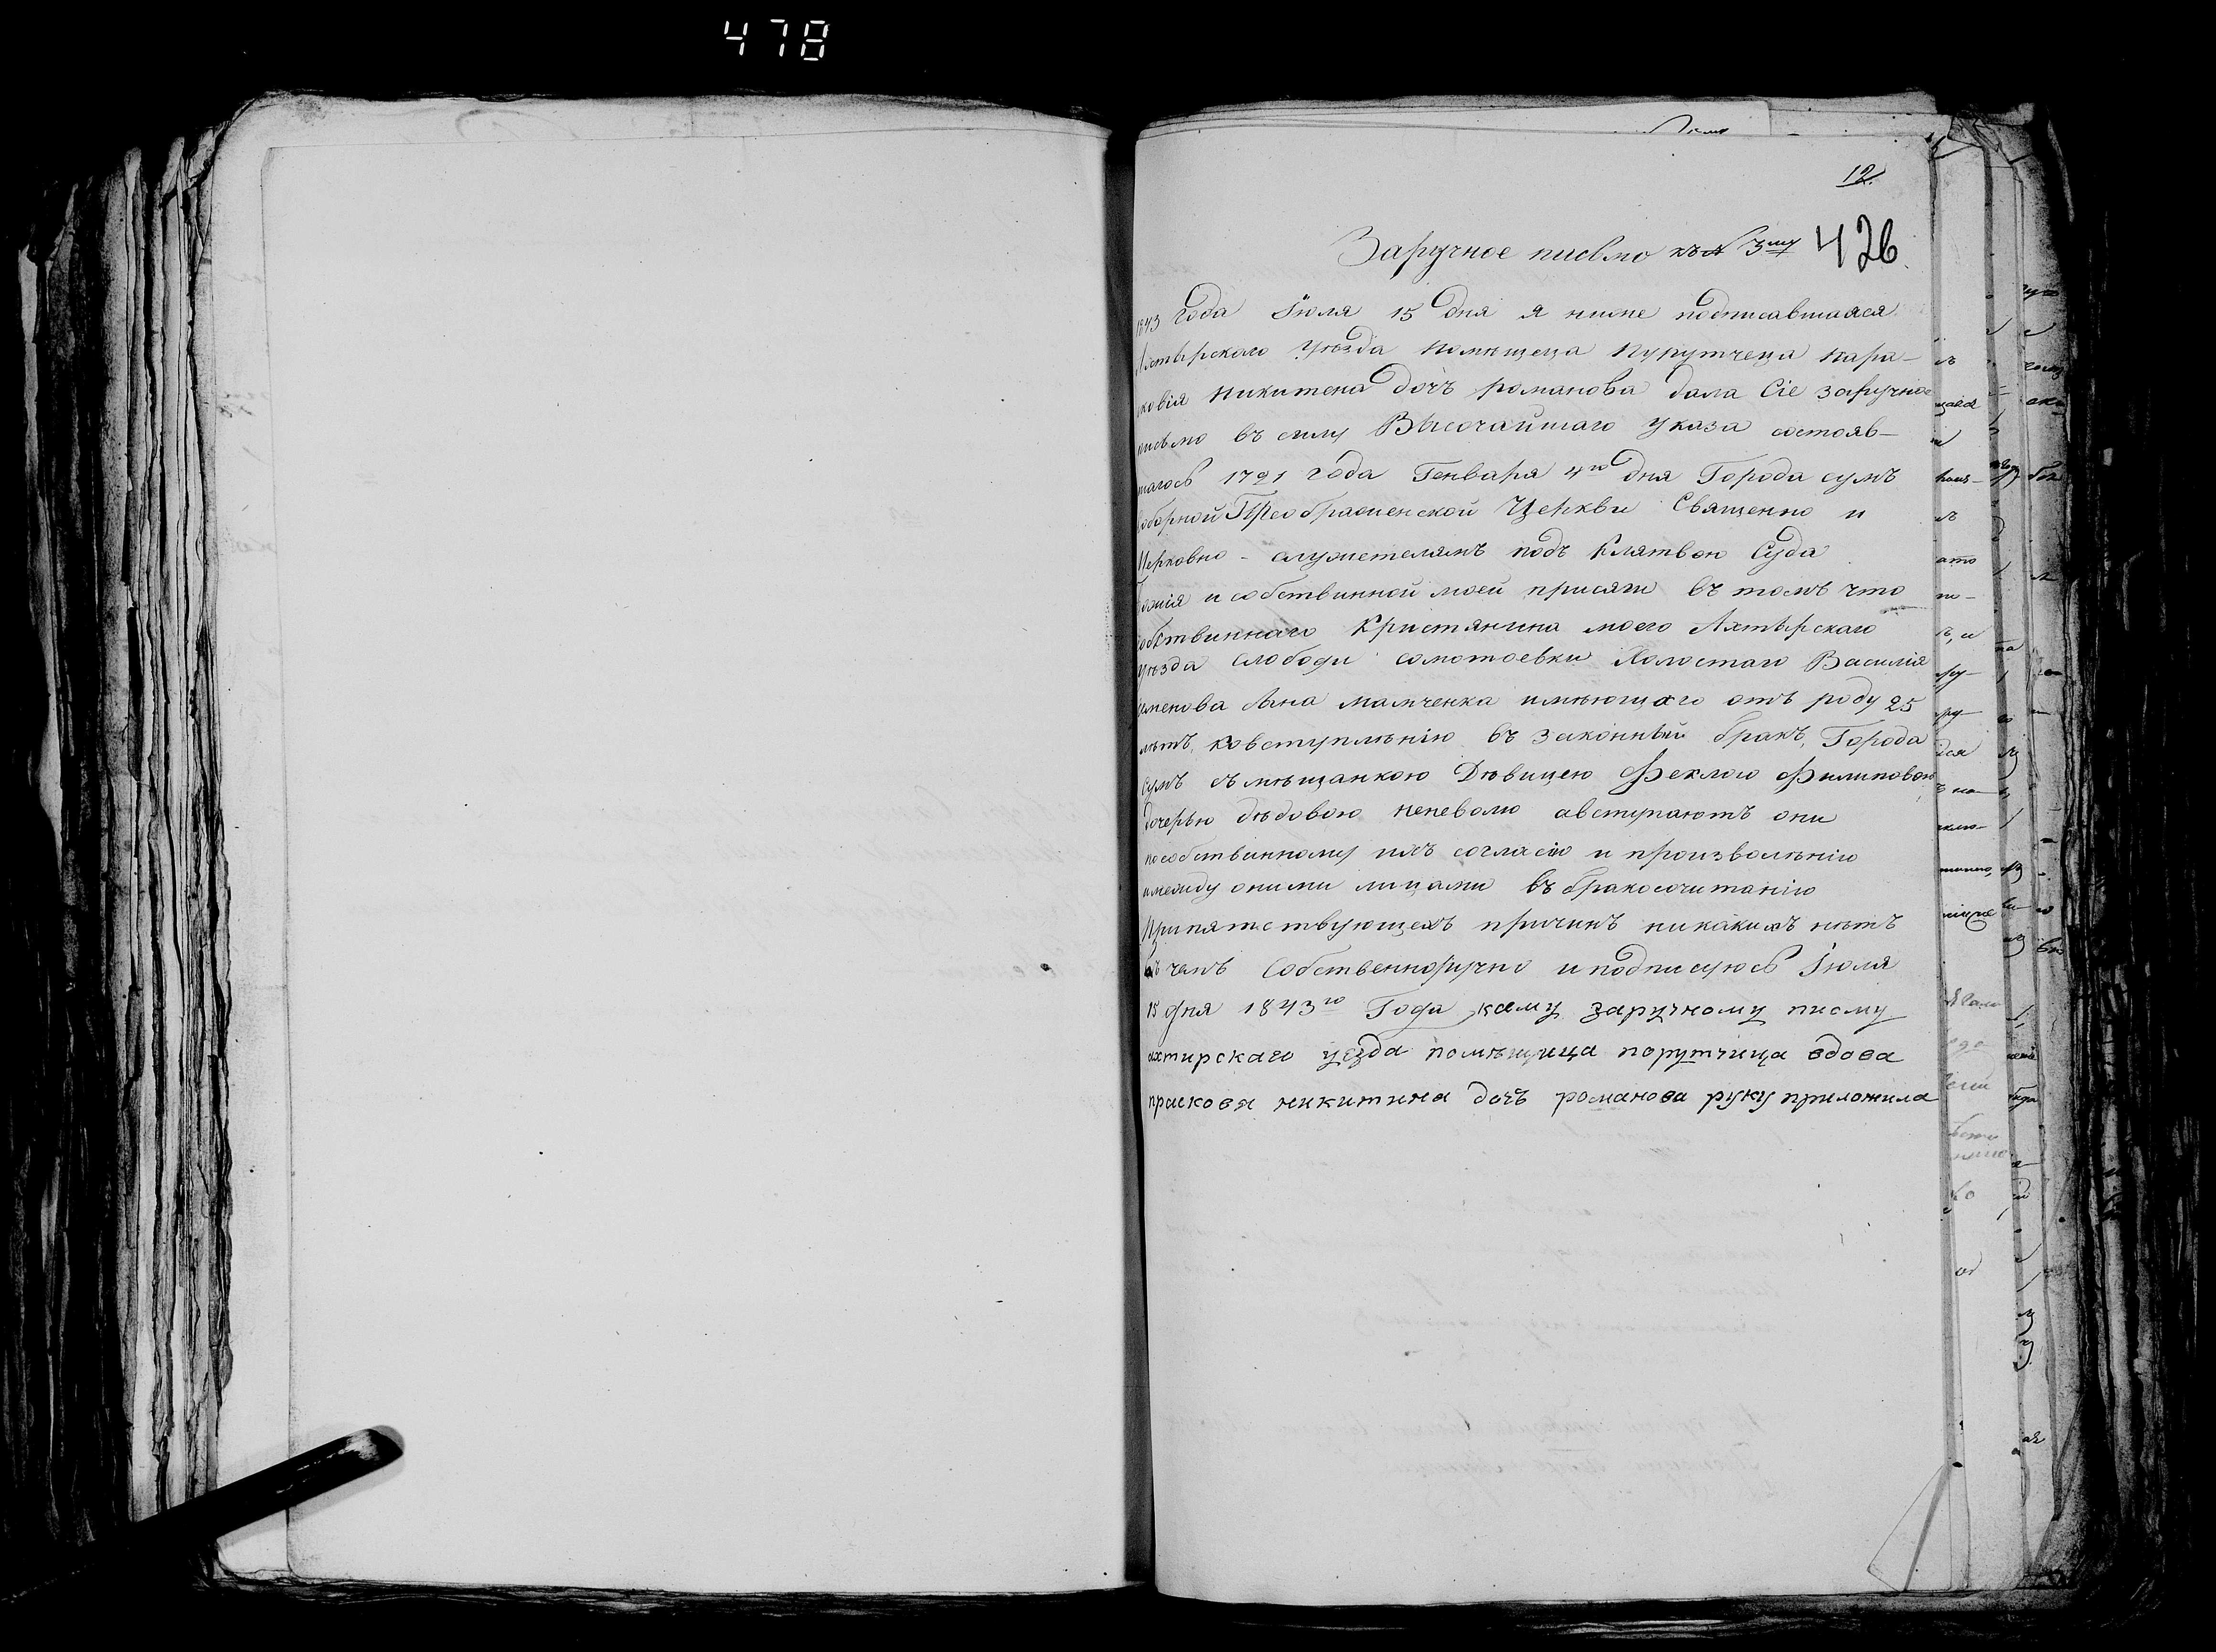 478
12.
Заручное письмо къ № 3му 426
1843 года Іюля 15 дня я ниже подписавшаяся
Ахтырского Уезда помещеца пуручеца пара-
сковія никитена дочъ романова дала Сіе заручное
письмо въ силу Высочайшаго указа состояв-
шагось 1791 года Генваря 4го дня Города сумъ
Соборной Преображенской Церкви Священно и
Церковно-служетелямъ подъ клятвою Суда
божія и собствинной моей присяги въ томъ что
собствиннаго Кристянина моего Ахтырскаго
уезда слободи самотоевки Холостаго Василія
сына мамченка имеющаго отъ роду 25
летъ, ковступленію въ законный бракъ, Города
Сумъ съ мещанкою Девицею Феклою Филиповою
дочерью дедовою неневолю авступаютъ они
пособствинному ихъ согласію и произволенію
имежду оними лицами въ бракосочитанію
Припятствующехъ причинъ никакихъ нетъ
въ чемъ Собственноручно иподписуюсь Іюля
15 дня 1843го Года, ксему заручному писму
ахтирскаго уезда помещица порутчица вдова
прасковя никитина дочъ романова руку приложила